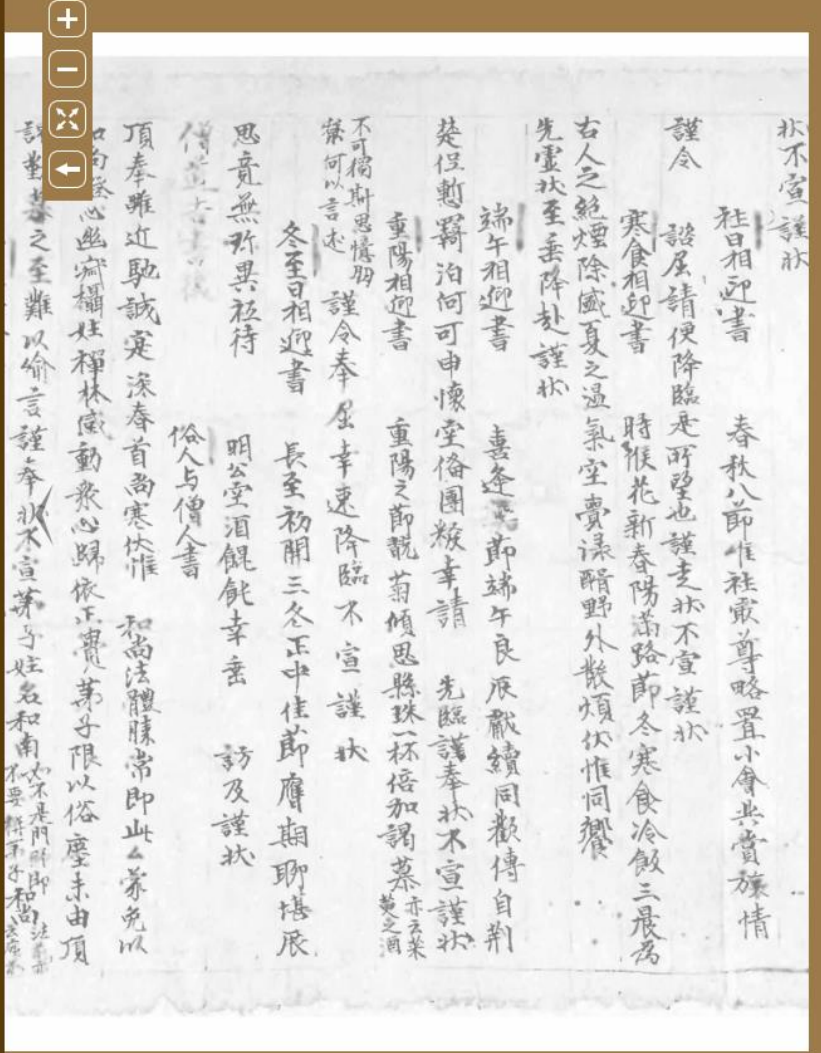 状不宣謹状
社日相迎書　春秋八節唯社最尊略置小會共賞旅情
謹令　諮屈請便降臨是所望也謹走状不宣謹状
寒食相迎書　時候花新春陽滿路節冬寒食冷飯三晨為
古人之絶煙除盛夏之温氣空賣淥醑野外散煩伏惟同饗
先靈状至垂降赴謹状
端午相迎書　喜逢節端午良辰獻續同歡傳自荆
楚但慙羇泊何可申懷空俻團粽幸請　先臨謹奉状不宣謹状
重陽相迎書　重陽之節玩菊傾思懸珠一杯倍加謁慕亦云茱
黄之酒
不可獨斯思憶朋
蘂何以言述　謹令奉屈幸速降臨不宣謹状
冬至日相迎書　長至初開三冬正中佳節膺期聊堪展
思竟無珎異祗待　明公空酒餛飩幸垂　訪及謹状
俗人与僧人書
頂奉雖近馳誠寔深春首尚寒伏惟　和尚法體勝常即此厶蒙免以
和尚心幽寂攝姓禪林感動衆心歸依正覺弟子限以俗塵未由頂
之至難以喻言謹奉状不宣弟子姓名和南